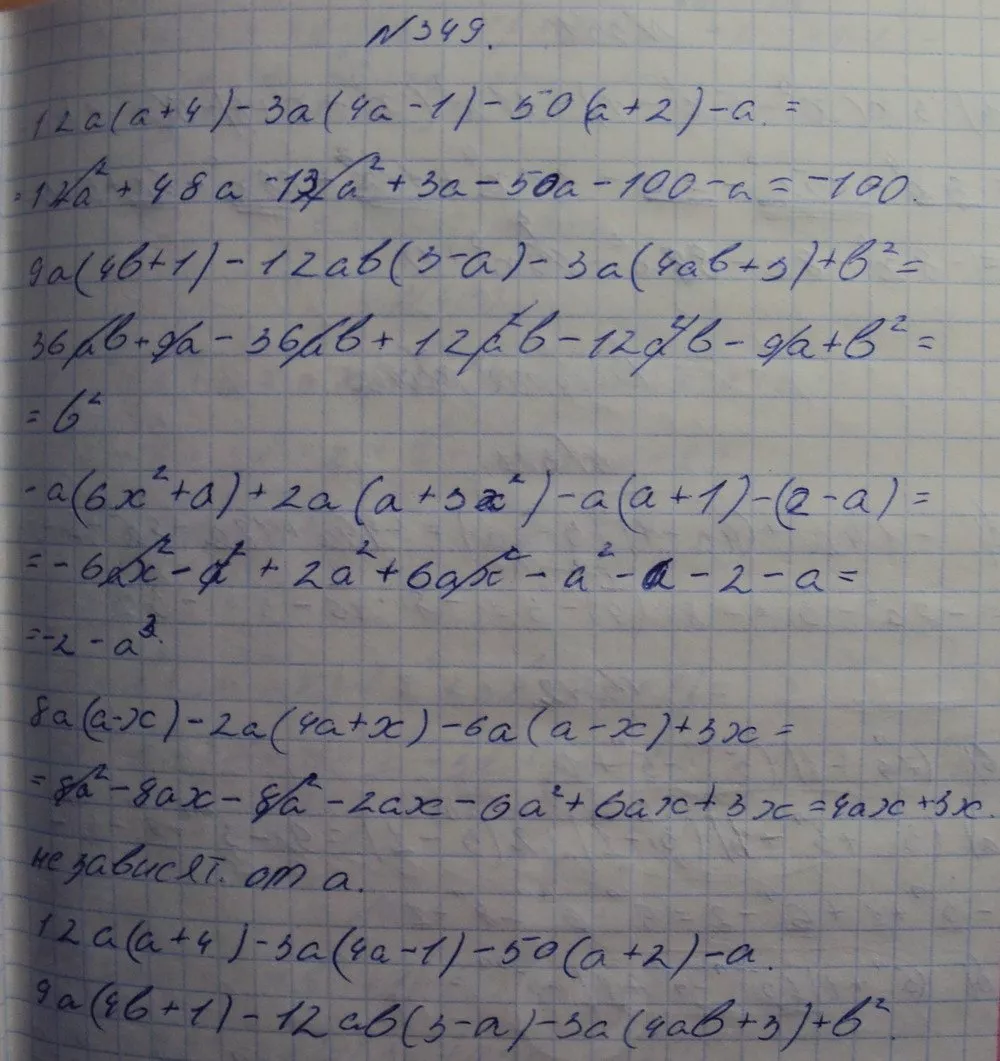 №349.
12a(a+4)-3a(4a-1)-50(a+2)-a.=
=12a²+48a-12a²+3a-50a-100-a=-100.
9a(4в+1)-12aв(3-a)-3a(4aв+3)+в²=
36aв+9a-36aв+12a²в-12a²в-9a+в²=
=в²
-a(6x²+a)+2a(a+3x²)-a(a+1)-(2-a)=
=-6ax²-a²+2a²+6ax²-a²-a-2-a=
=-2-a².
8a(a-x)-2a(4a+x)-6a(a-x)+3x=
=8a²-8ax-8a²-2ax-6a²+6ax+3x=4ax+3x.
не зависят. от a.
12a(a+4)-3a(4a-1)-50(a+2)-a.
9a(4в+1)-12aв(3-a)-3a(4aв+3)+в².